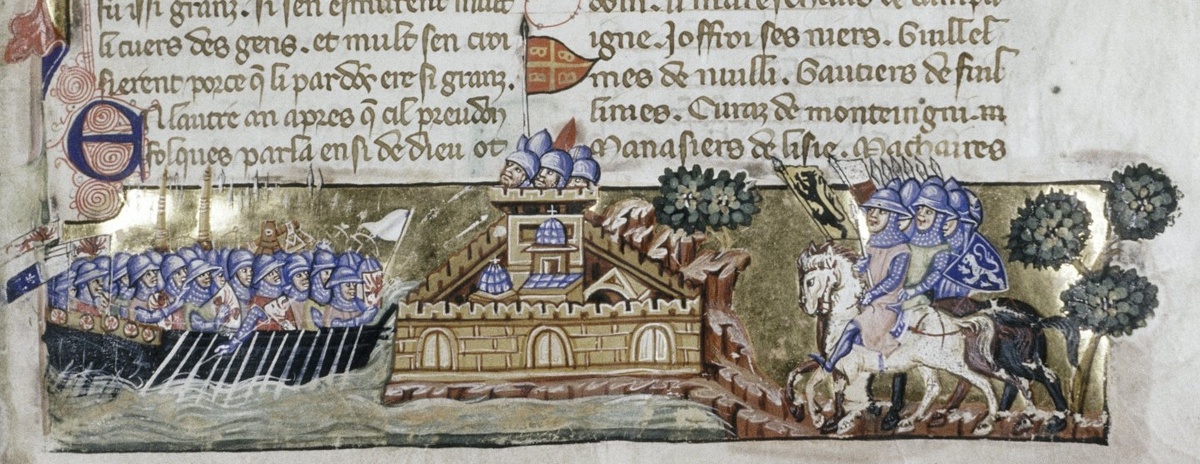 fu issi granz. si sen esmurent mult
li cuers des gens. et mult sen croi
sierent porce q̃ li pardōs ere si granz.
En lautre an apres q̃ cil preudon
folques parla ensi de dieu ot
doin. li mareschaus de campa
igne. Joffroi ses niers. Guillel
mes de nuilli. Gautiers de fuil
limes. Euraz de monteingni.
Manasiers de lisle. Machaires